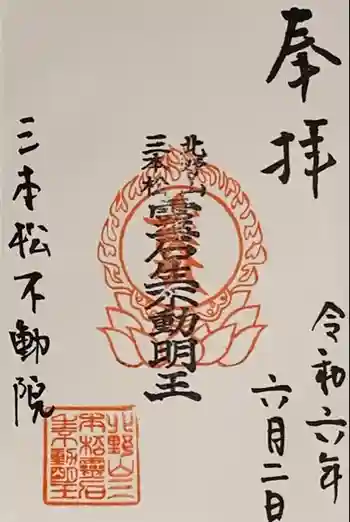 奉拝
令和六年
六月二日
北野山
三本松
霊石生不動明王
三本松不動院
北野山三
本松霊石
生不動明王